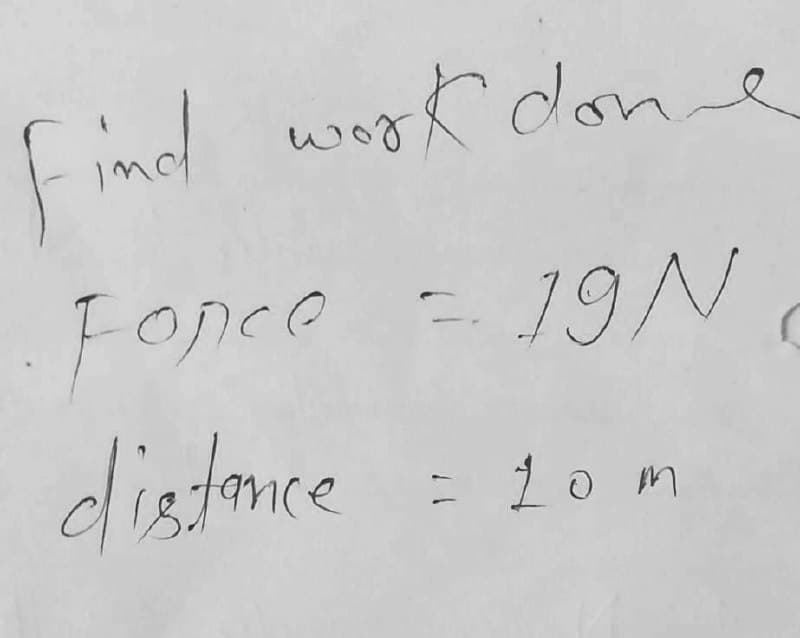 Find work done
Force = 19N
distance = 10 m